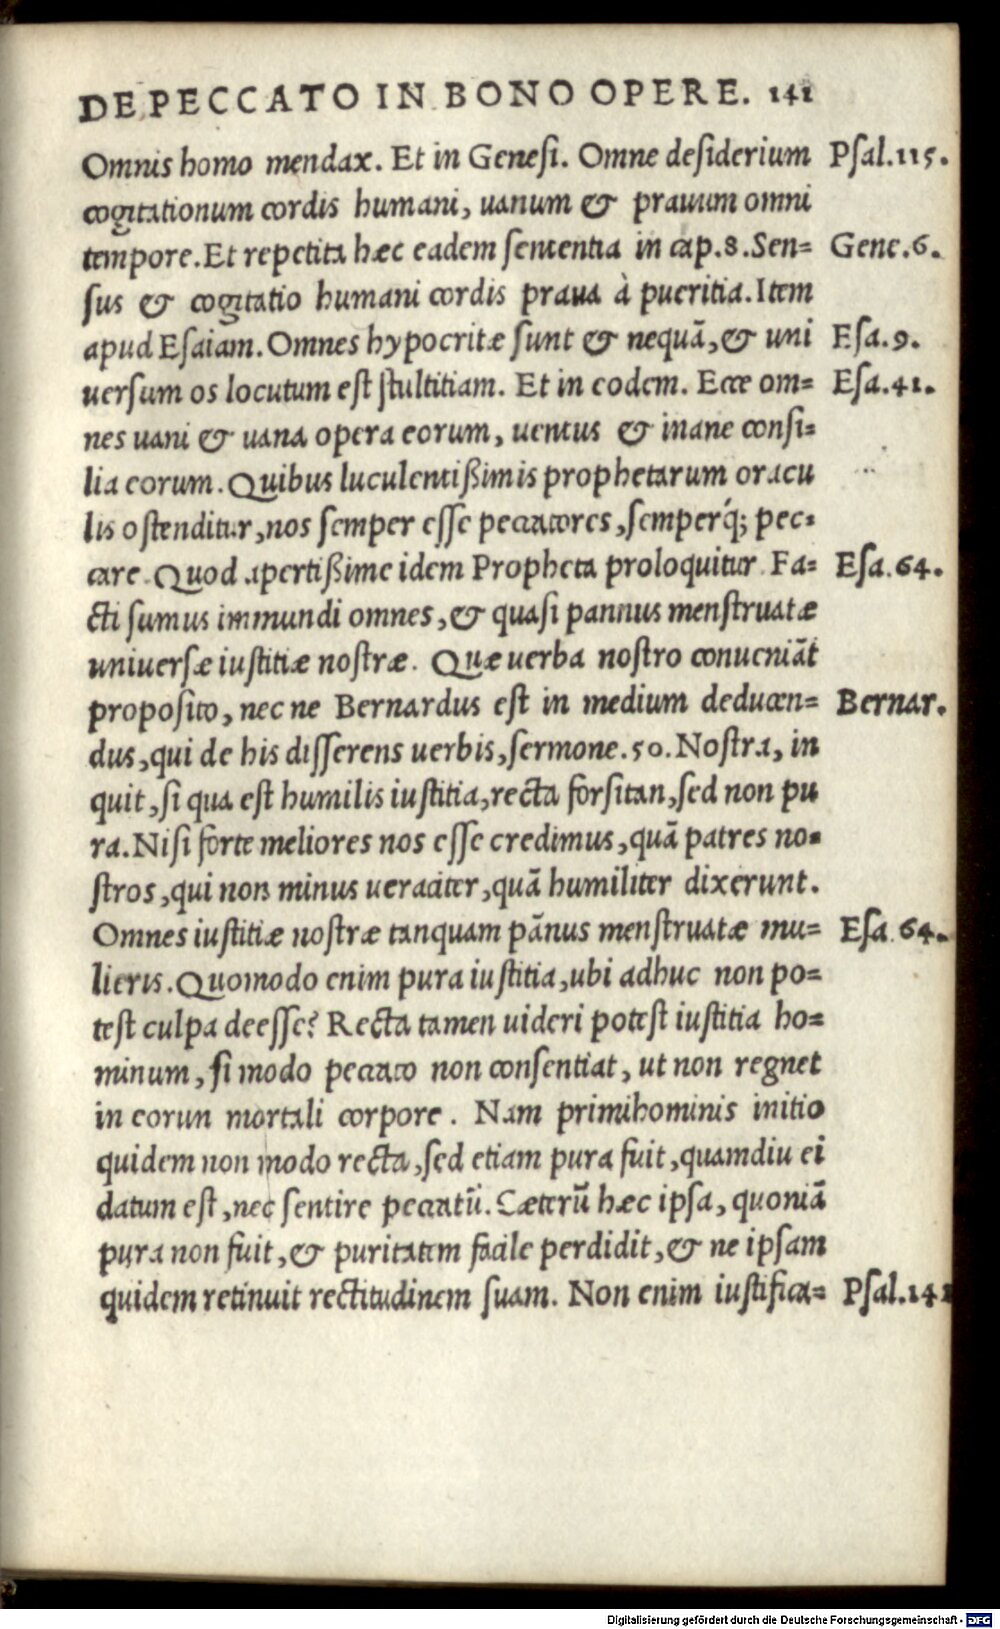 DE PECCATO IN BONO OPERE. 141
Omnis homo mendax. Et in Genesi. Omne desiderium Psal.115.
cogitationum cordis humani, uanum & prauum omni
tempore. Et repetita hæc eadem sententia in cap.8. Sen= Gene.6.
sus & cogitatio humani cordis praua à pueritia. Item
apud Esaiam. Omnes hypocritæ sunt & nequā, & uni Esa.9.
uersum os locutum est stultitiam. Et in eodem. Ecce om= Esa.41.
nes uani & uana opera eorum, uentus & inane consi=
lia eorum. Quibus luculentißimis prophetarum oracu
lis ostenditur, nos semper esse peccatores, semperq́; pec=
care. Quod apertißime idem Propheta proloquitur. Fa= Esa.64.
cti sumus immundi omnes, & quasi pannus menstruatæ
uniuersæ iustitiæ nostræ. Quæ uerba nostro conueniāt
proposito, nec ne Bernardus est in medium deducen= Bernar.
dus, qui de his disserens uerbis, sermone.50. Nostra, in
quit, si qua est humilis iustitia, recta forsitan, sed non pu
ra. Nisi forte meliores nos esse credimus, quā patres no=
stros, qui non minus ueraciter, quā humiliter dixerunt.
Omnes iustitiæ nostræ tanquam pānus menstruatæ mu= Esa.64.
lieris. Quomodo enim pura iustitia, ubi adhuc non po=
test culpa deesse? Recta tamen uideri potest iustitia ho=
minum, si modo peccato non consentiat, ut non regnet
in eorun mortali corpore. Nam primi hominis initio
quidem non modo recta, sed etiam pura fuit, quamdiu ei
datum est, nec sentire peccatū. Cæterū hæc ipsa, quoniā
pura non fuit, & puritatem facile perdidit, & ne ipsam
quidem retinuit rectitudinem suam. Non enim iustifica= Psal.142
Digitalisierung gefördert durch die Deutsche Forschungsgemeinschaft - DFG